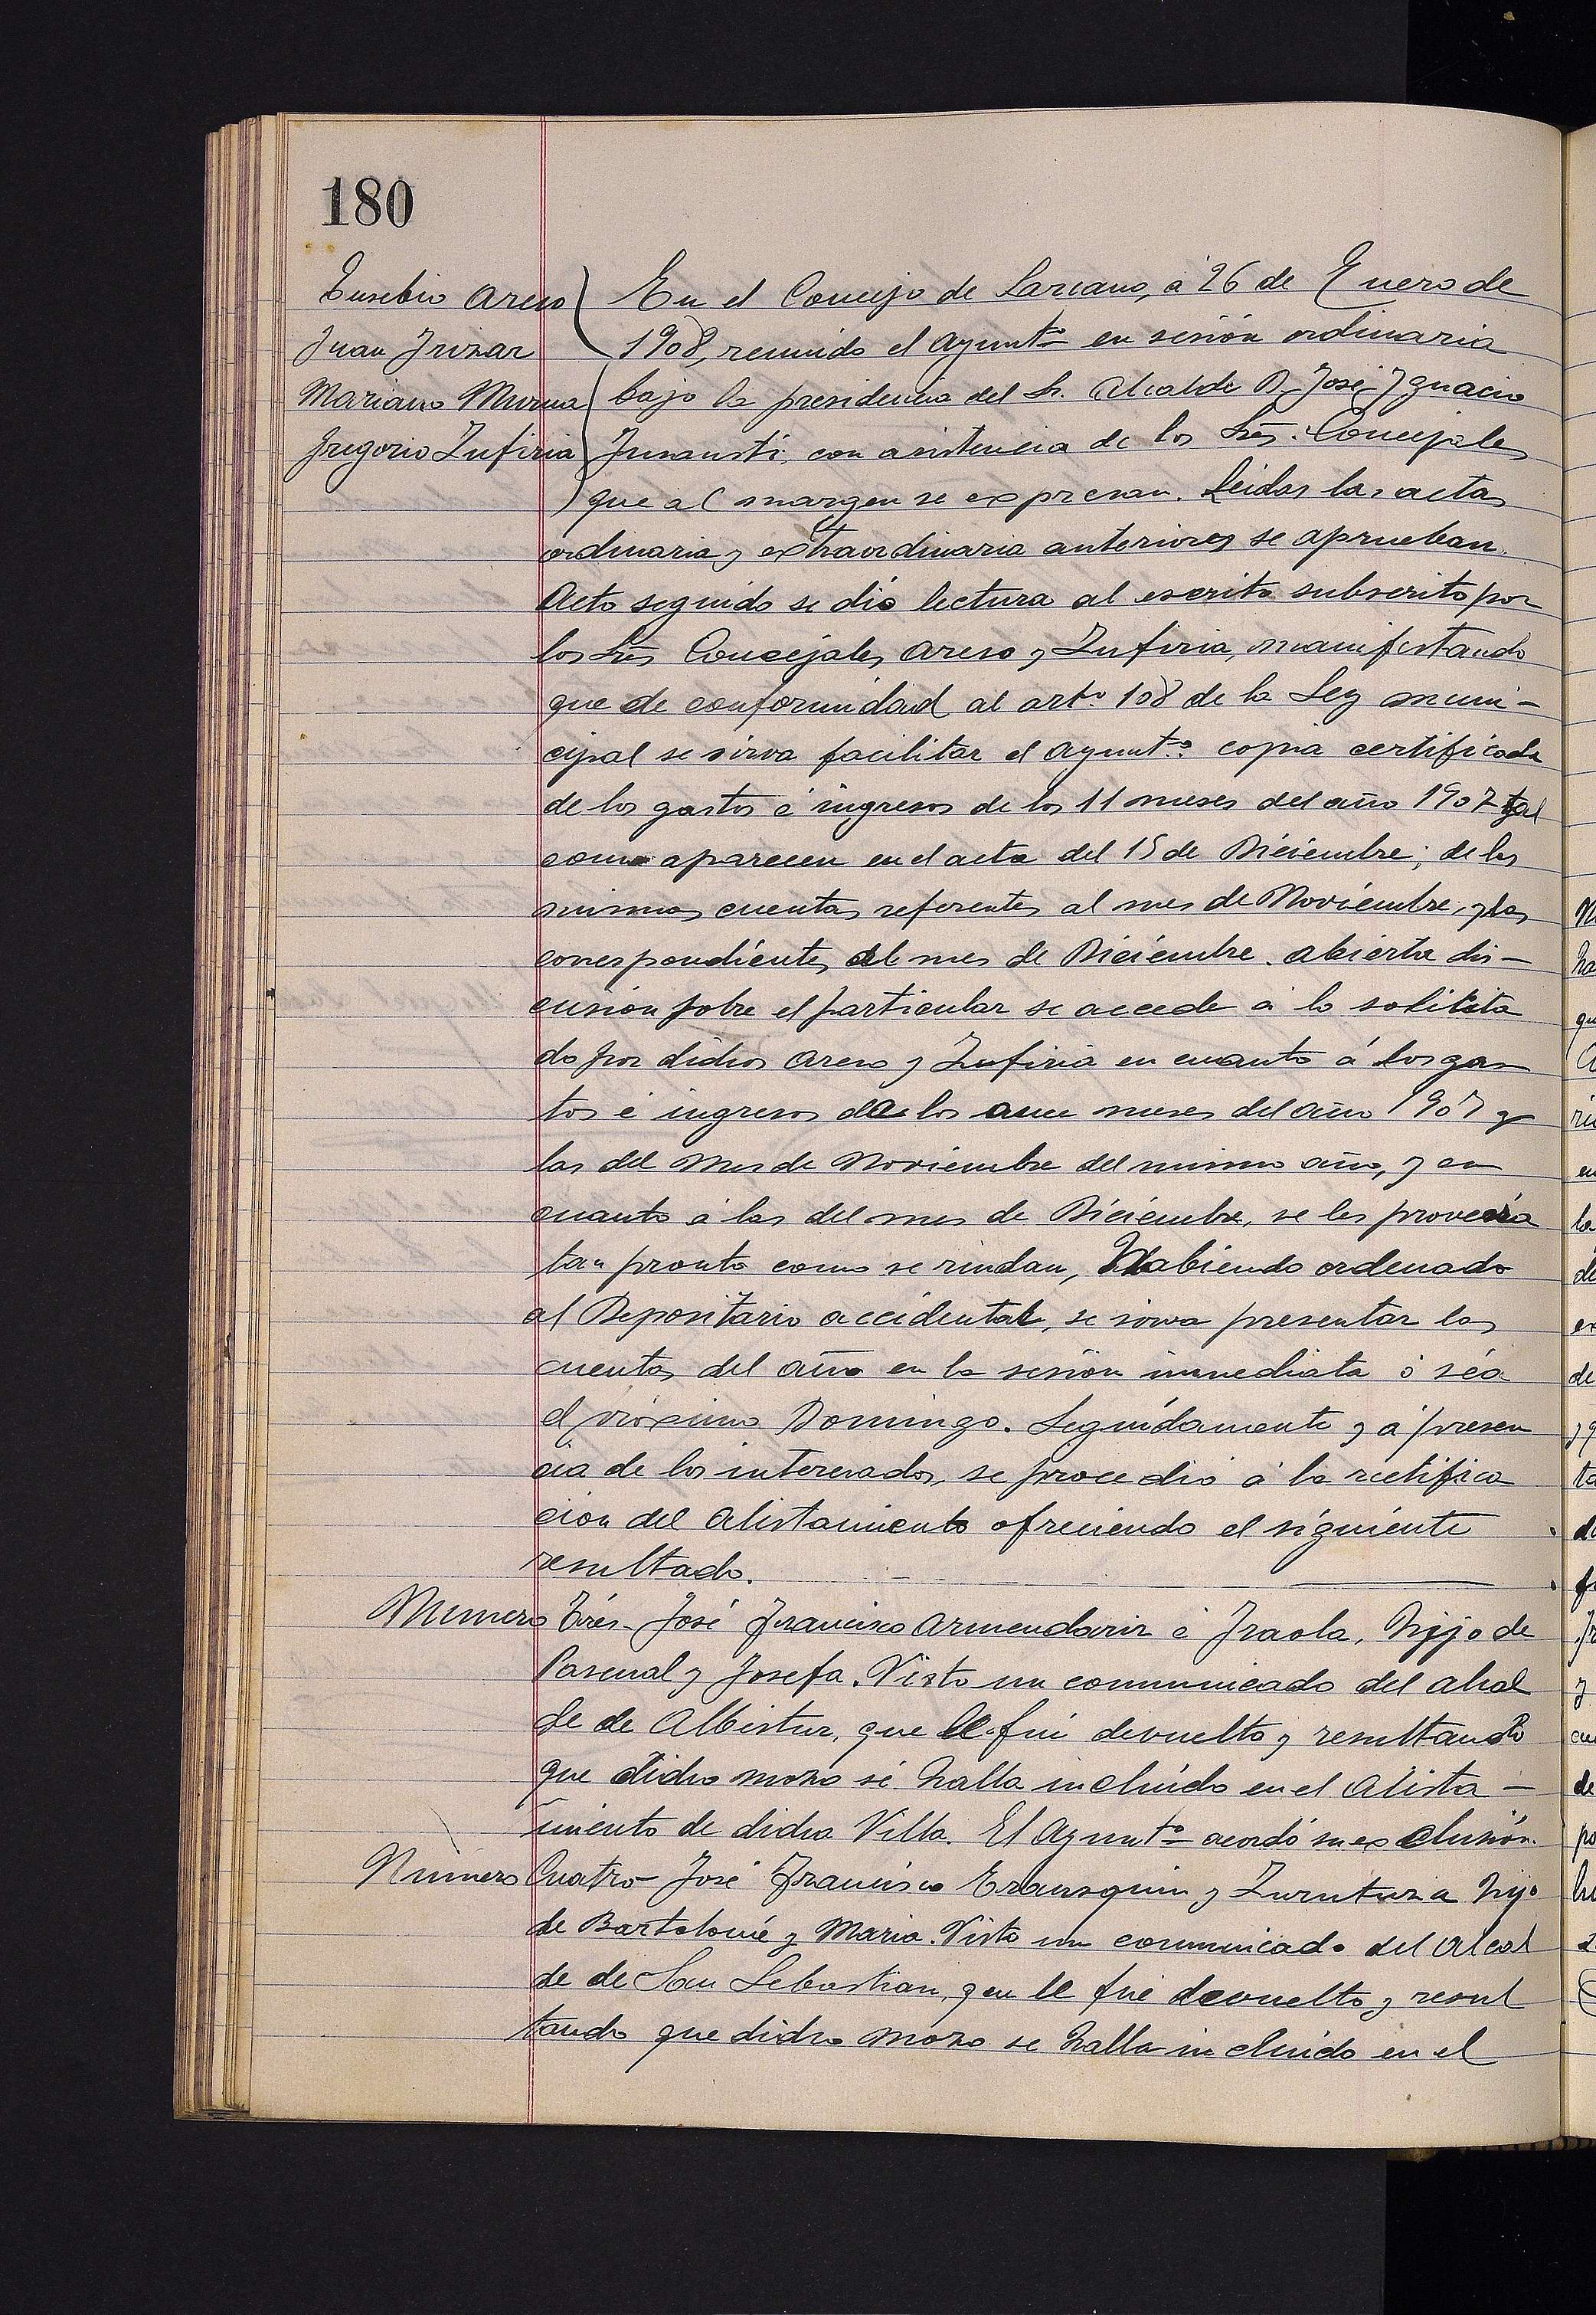 180
Eusebio Areso
Juan Irizar
Mariano Murua
Gregorio Zufiria
En el Concejo de Lazcano, á 26 de Enero de
1908, reunido el Ayuntº en sesión ordinaria
bajo la presidencia del Sr. Alcalde D. José Ygnacio
Insausti, con asistencia de los Srēs. Concejales
que al margen se expresan. Leidas las actas
ordinaria y extraordinaria anteriores se aprueban.
Acto seguido se dió lectura al escrito subscrito por
los Srēs Concejales Areso y Zufiria, manifestando
que de conformidad al artº 108 de la Ley muni-
cipal se sirva facilitar el Ayuntº copia certificada
de los gastos é ingresos de los 11 meses del año 1907 tal
como aparecen en el acta del 15 de Diciembre; de las
mismas cuentas referentes al mes de Noviembre, y las
correspondientes al mes de Diciembre. Abierta dis-
cusion sobre el particular se accede á lo solicita
do por dichos Areso y Zufiria en cuanto á los gas
tos é ingresos de los once meses del año 1907 y
las del mes de Noviembre del mismo año, y en
cuanto á las del mes de Diciembre, se les proveeria
tan pronto como se rindan, Habiendo ordenado
al Depositario accidental, se sirva presentar las
cuentas del año en la sesión inmediata ó séa
el próximo Domingo. Seguidamente y á presen
cia de los interesados, se procedió á la rectifica
cion del Alistamiento ofreciendo el siguiente
resultado.
Numero Trés- José Francisco Armendariz é Iraola, hijo de
Pascual y Josefa. Visto un comunicado del alcal
de de Albistur, que le fué devuelto y resultando
que dicho mozo sé halla incluido en el Alista-
miento de dicha Villa. El Ayuntº acordó su exclusión.
Número Cuatro- José Francisco Erausquin y Zurutuza hijo
de Bartolomé y Maria. Visto un comunicado del Alcal
de de San Sebastian, que le fué devuelto y resul
tando que dicho mozo se halla incluido en el